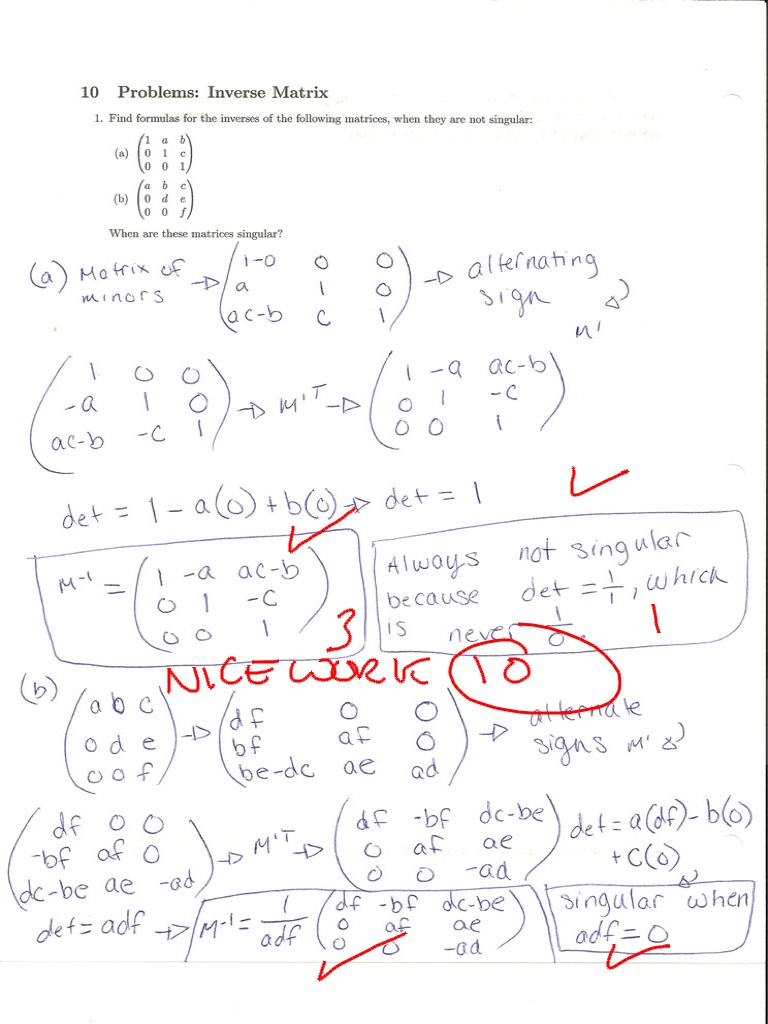 10 Problems: Inverse Matrix
1. Find formulas for the inverses of the following matrices, when they are not singular:
(a) (1 a b
0 1 c
0 0 1)
(b) (a b c
0 d e
0 0 f)
When are these matrices singular?
(a) Matrix of minors → (1-0 0 0
a 1 0
ac-b c 1) → alternating sign M'
(1 0 0
-a 1 0
ac-b -c 1) → M'T → (1 -a ac-b
0 1 -c
0 0 1)
det = 1 - a(0) + b(0) → det = 1
M-1 = (1 -a ac-b
0 1 -c
0 0 1)
3
Always not singular
because det = 1/1, which
is never 1/0.
1
NICE WORK 10
(b) (a b c
0 d e
0 0 f) → (df 0 0
bf af 0
be-dc ae ad) → alternate signs M'
(df 0 0
-bf af 0
dc-be ae -ad) → M'T → (df -bf dc-be
0 af ae
0 0 -ad)
det = a(df) - b(0)
+ c(0)
det = adf → M-1 = 1/adf (df -bf dc-be
0 af ae
0 0 -ad)
singular when
adf = 0